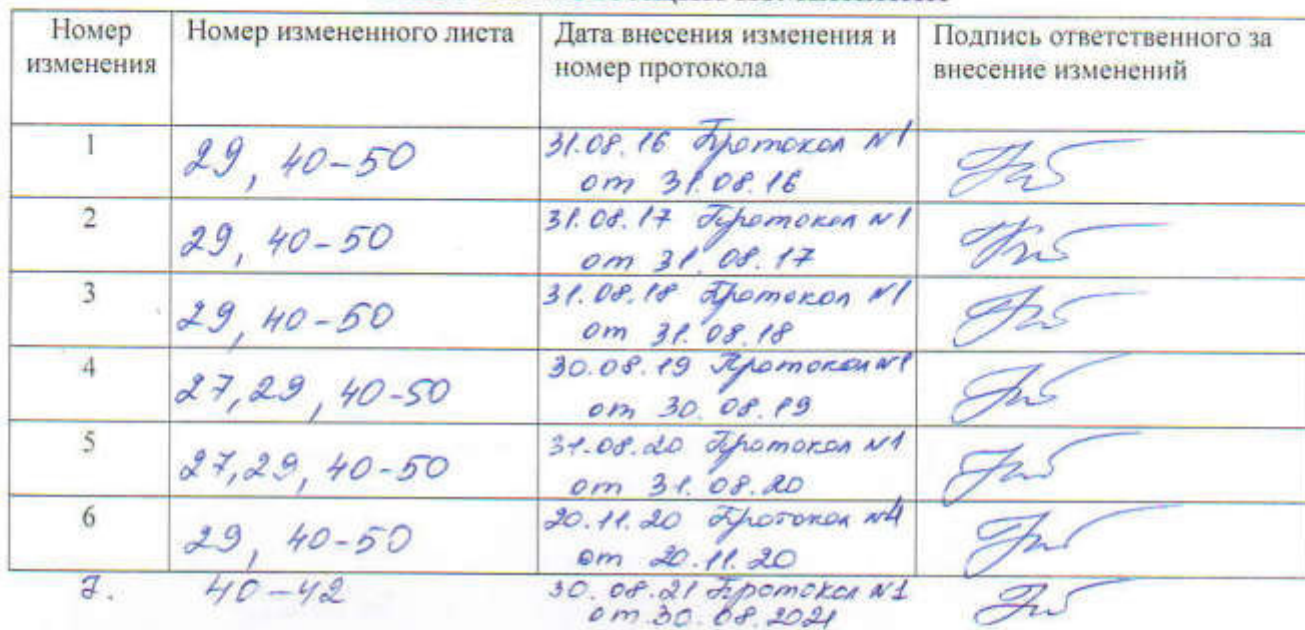 Номер изменения
Номер измененного листа
Дата внесения изменения и номер протокола
Подпись ответственного за внесение изменений
1
29, 40-50
31.08.16 Протокол №1
от 31.08.16
2
29, 40-50
31.08.17 Протокол №1
от 31.08.17
3
29, 40-50
31.08.18 Протокол №1
от 31.08.18
4
27,29, 40-50
30.08.19 Протокол №1
от 30.08.19
5
27,29, 40-50
31.08.20 Протокол №1
от 31.08.20
6
29, 40-50
20.11.20 Протокол №4
от 20.11.20
7.
40-42
30.08.21 Протокол №1
от 30.08.2021